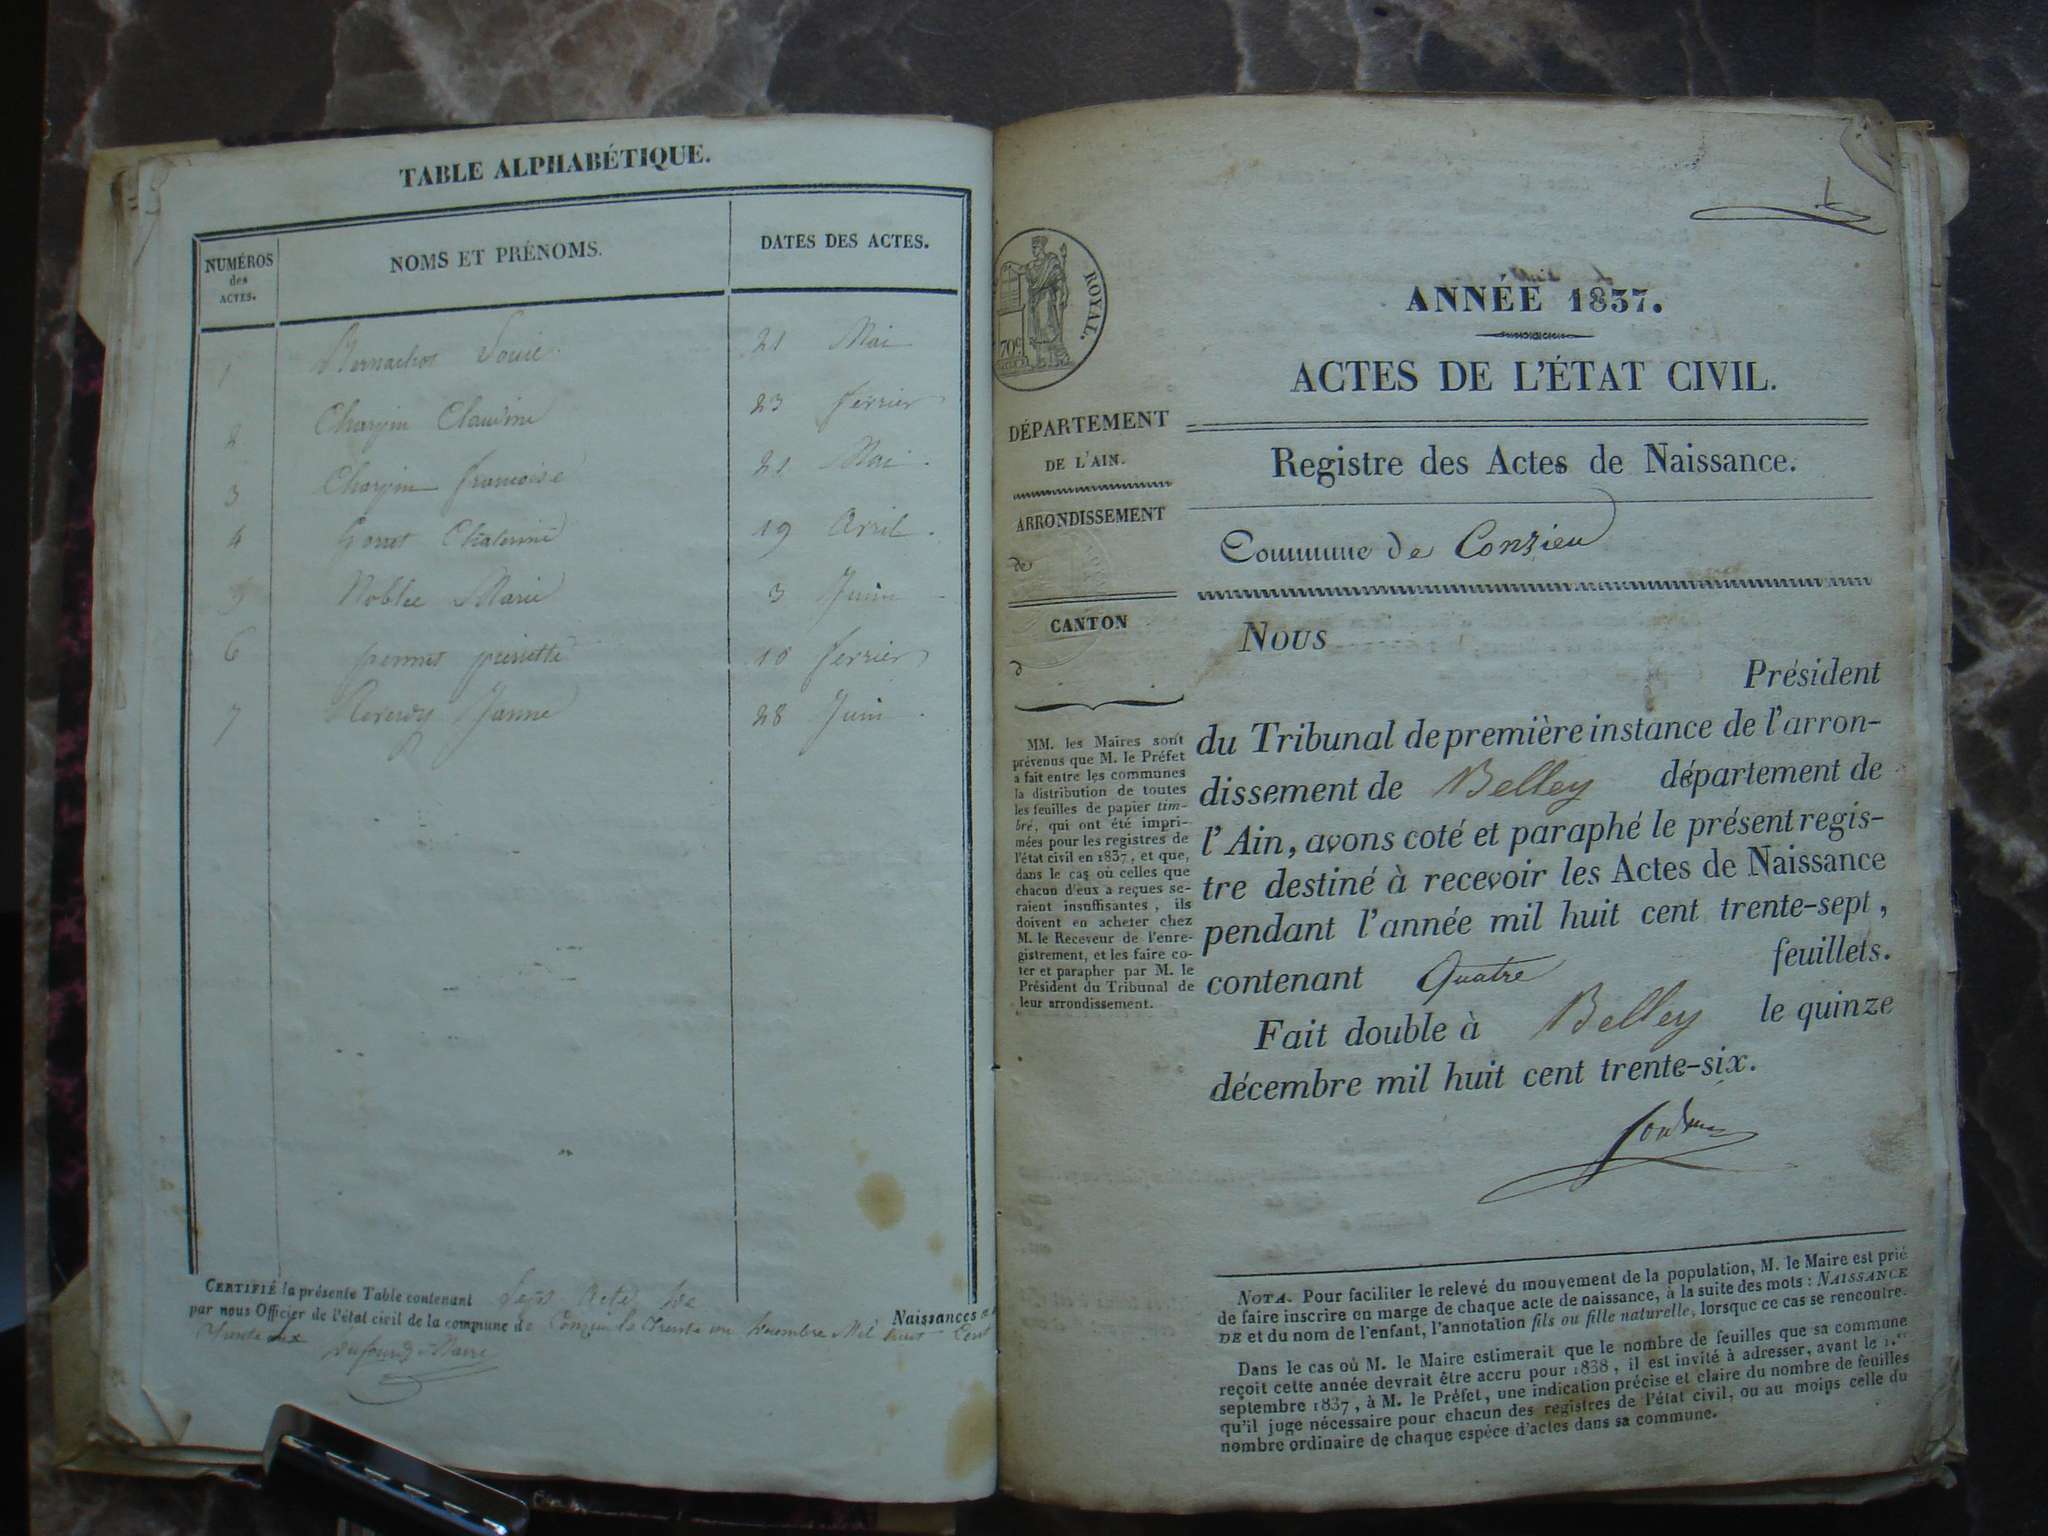 TABLE ALPHABÉTIQUE.
NUMÉROS
des
ACTES.
NOMS ET PRÉNOMS.
DATES DES ACTES.
1 Louis 21 Mai
2 Charpin Claudine 23 fevrier
3 Charpin francoise 21 Mai
4 Chaterine 19 Avril
5 Marie 3 Juin
6 pierrette 10 fevrier
7 Jeanne 28 Juin
CERTIFIÉ la présente Table contenant Sept Acte de Naissances
par nous Officier de l'état civil de la commune de Conzieu le Trente un Décembre Mil huit Cent
Trente six
Maire
ROYAL.
70c
ANNÉE 1837.
ACTES DE L'ÉTAT CIVIL.
DÉPARTEMENT
DE L'AIN.
ARRONDISSEMENT
de
CANTON
d
Registre des Actes de Naissance.
Commune de Conzieu
MM. les Maires sont
prévenus que M. le Préfet
a fait entre les communes
la distribution de toutes
les feuilles de papier tim-
bré, qui ont été impri-
mées pour les registres de
l'état civil en 1837, et que,
dans le cas où celles que
chacun d'eux a reçues se-
raient insuffisantes, ils
doivent en acheter chez
M. le Receveur de l'enre-
gistrement, et les faire co-
ter et parapher par M. le
Président du Tribunal de
leur arrondissement.
Nous
Président
du Tribunal de première instance de l'arron-
dissement de Belley département de
l'Ain, avons coté et paraphé le présent regis-
tre destiné à recevoir les Actes de Naissance
pendant l'année mil huit cent trente-sept,
contenant Quatre feuillets.
Fait double à Belley le quinze
décembre mil huit cent trente-six.
NOTA. Pour faciliter le relevé du mouvement de la population, M. le Maire est prié
de faire inscrire en marge de chaque acte de naissance, à la suite des mots: NAISSANCE
DE et du nom de l'enfant, l'annotation fils ou fille naturelle, lorsque ce cas se rencontre.
Dans le cas où M. le Maire estimerait que le nombre de feuilles que sa commune
reçoit cette année devrait être accru pour 1838, il est invité à adresser, avant le 1.er
septembre 1837, à M. le Préfet, une indication précise et claire du nombre de feuilles
qu'il juge nécessaire pour chacun des registres de l'état civil, ou au moins celle du
nombre ordinaire de chaque espèce d'actes dans sa commune.